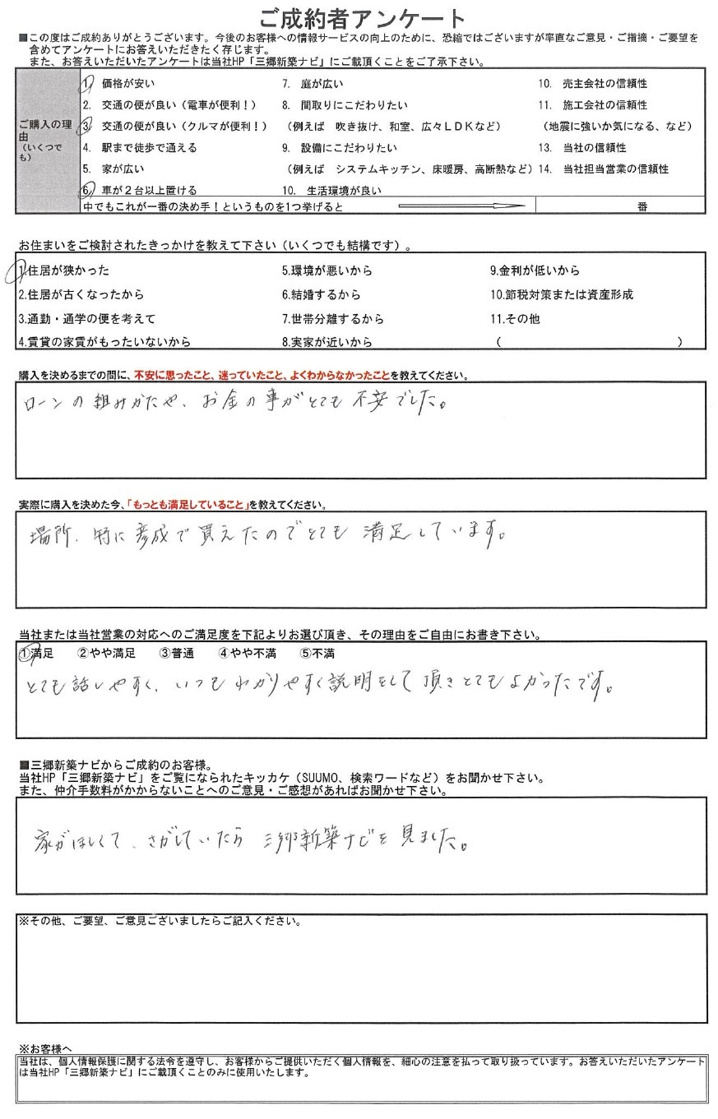 ご成約者アンケート
■この度はご成約ありがとうございます。今後のお客様への情報サービスの向上のために、恐縮ではございますが率直なご意見・ご指摘・ご要望を
含めてアンケートにお答えいただきたく存じます。
また、お答えいただいたアンケートは当社HP「三郷新築ナビ」にご載頂くことをご了承下さい。
ご購入の理由
（いくつでも）
1. 価格が安い 7. 庭が広い 10. 売主会社の信頼性
2. 交通の便が良い（電車が便利！） 8. 間取りにこだわりたい 11. 施工会社の信頼性
3. 交通の便が良い（クルマが便利！） （例えば 吹き抜け、和室、広々ＬＤＫなど） （地震に強いか気になる、など）
4. 駅まで徒歩で通える 9. 設備にこだわりたい 13. 当社の信頼性
5. 家が広い （例えば システムキッチン、床暖房、高断熱など） 14. 当社担当営業の信頼性
6. 車が２台以上置ける 10. 生活環境が良い
中でもこれが一番の決め手！というものを1つ挙げると 番
お住まいをご検討されたきっかけを教えて下さい（いくつでも結構です）。
1.住居が狭かった 5.環境が悪いから 9.金利が低いから
2.住居が古くなったから 6.結婚するから 10.節税対策または資産形成
3.通勤・通学の便を考えて 7.世帯分離するから 11.その他
4.賃貸の家賃がもったいないから 8.実家が近いから （ ）
購入を決めるまでの間に、不安に思ったこと、迷っていたこと、よくわからなかったことを教えてください。
ローンの組みかたや、お金の事がとても不安でした。
実際に購入を決めた今、「もっとも満足していること」を教えてください。
場所、特に彦成で買えたのでとても満足しています。
当社または当社営業の対応へのご満足度を下記よりお選び頂き、その理由をご自由にお書き下さい。
①満足 ②やや満足 ③普通 ④やや不満 ⑤不満
とても話しやすく、いつもわかりやすく説明をして頂きとてもよかったです。
■三郷新築ナビからご成約のお客様。
当社HP「三郷新築ナビ」をご覧になられたキッカケ（SUUMO、検索ワードなど）をお聞かせ下さい。
また、仲介手数料がかからないことへのご意見・ご感想があればお聞かせ下さい。
家がほしくて、さがしていたら三郷新築ナビを見ました。
※その他、ご要望、ご意見ございましたらご記入ください。
※お客様へ
当社は、個人情報保護に関する法令を遵守し、お客様からご提供いただく個人情報を、細心の注意を払って取り扱っています。お答えいただいたアンケート
は当社HP「三郷新築ナビ」にご載頂くことのみに使用いたします。